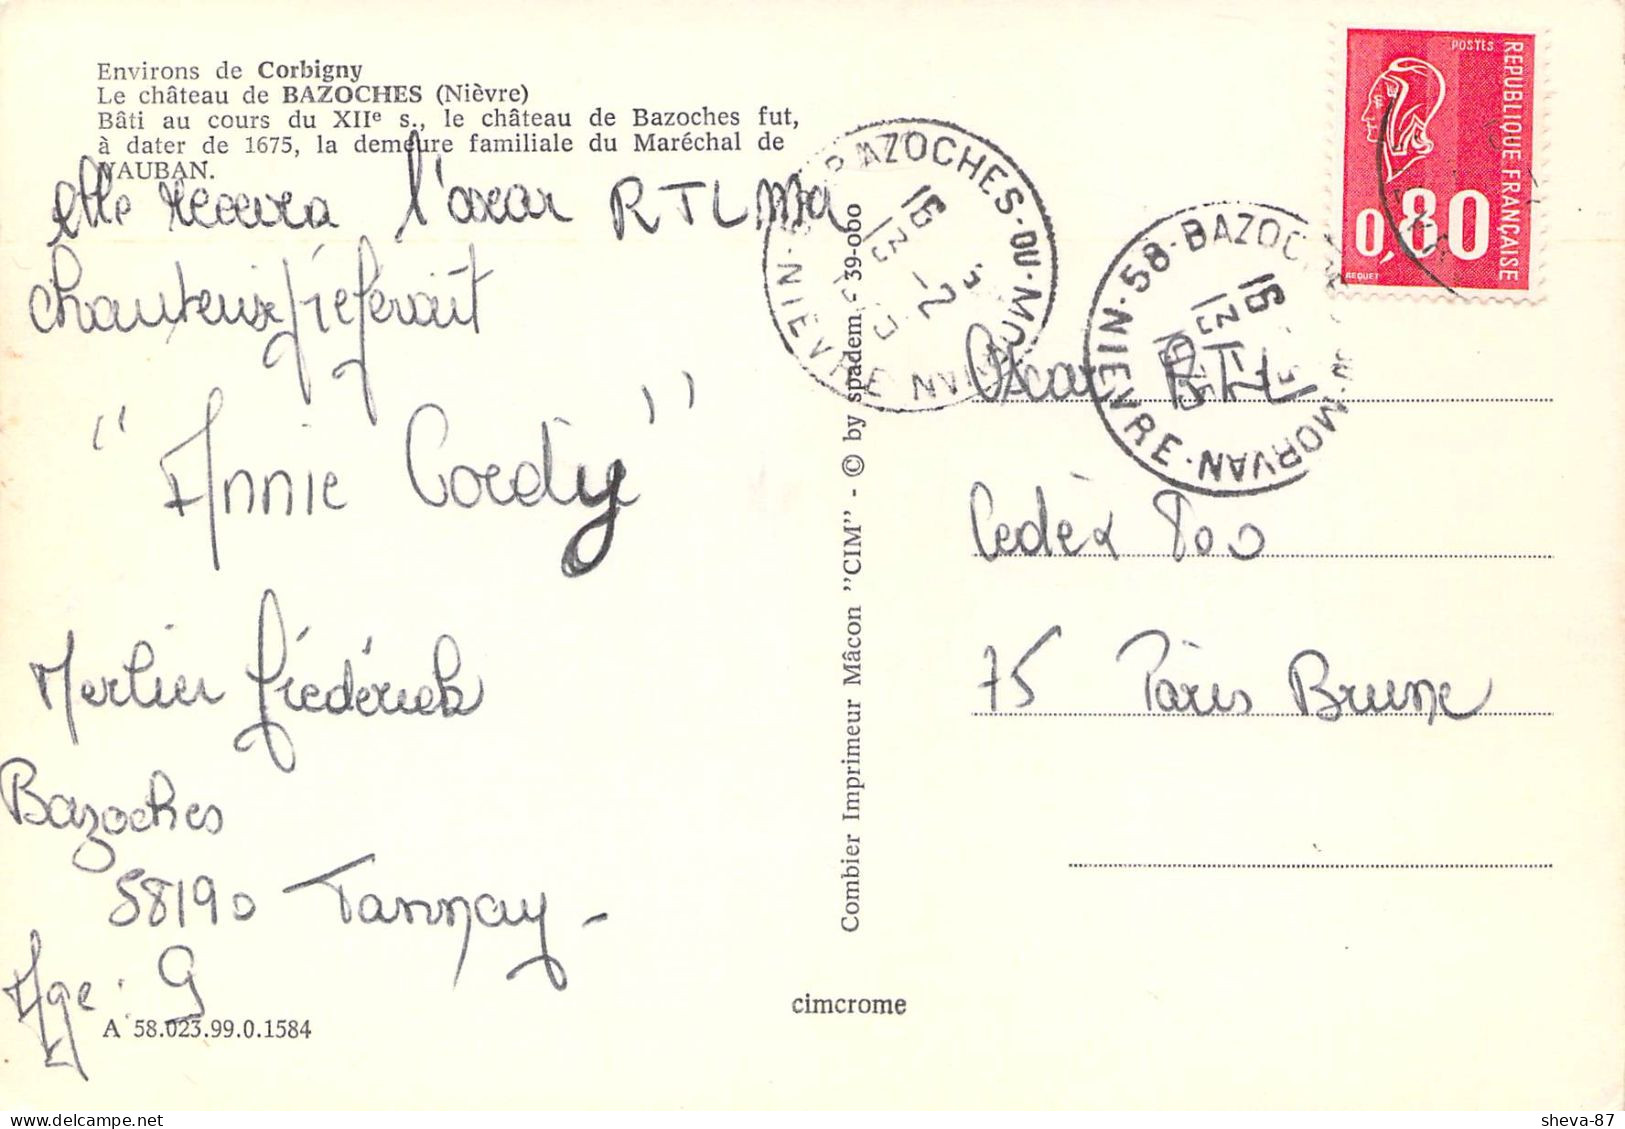 Environs de Corbigny
Le château de BAZOCHES (Nièvre)
Bâti au cours du XIIe s., le château de Bazoches fut,
à dater de 1675, la demeure familiale du Maréchal de
VAUBAN.
elle recevra l'oscar RTL Ma
chanteuse préferait
"Annie Cordy"
Merlier fréderick
Bazoches
58190 Tannay -
Age : 9
A 58.023.99.0.1584
Combier Imprimeur Mâcon "CIM" - © by spadem - 39-000
cimcrome
58-BAZOCHES-DU-MORVAN NIÈVRE
16 H
13 -2
58-BAZOCHES-DU-MORVAN NIÈVRE
16 H
13-2
1975
POSTES
REPUBLIQUE FRANÇAISE
0,80
BEQUET
Oscar RTL
Cedèx 800
75 Paris Brune
sheva-87